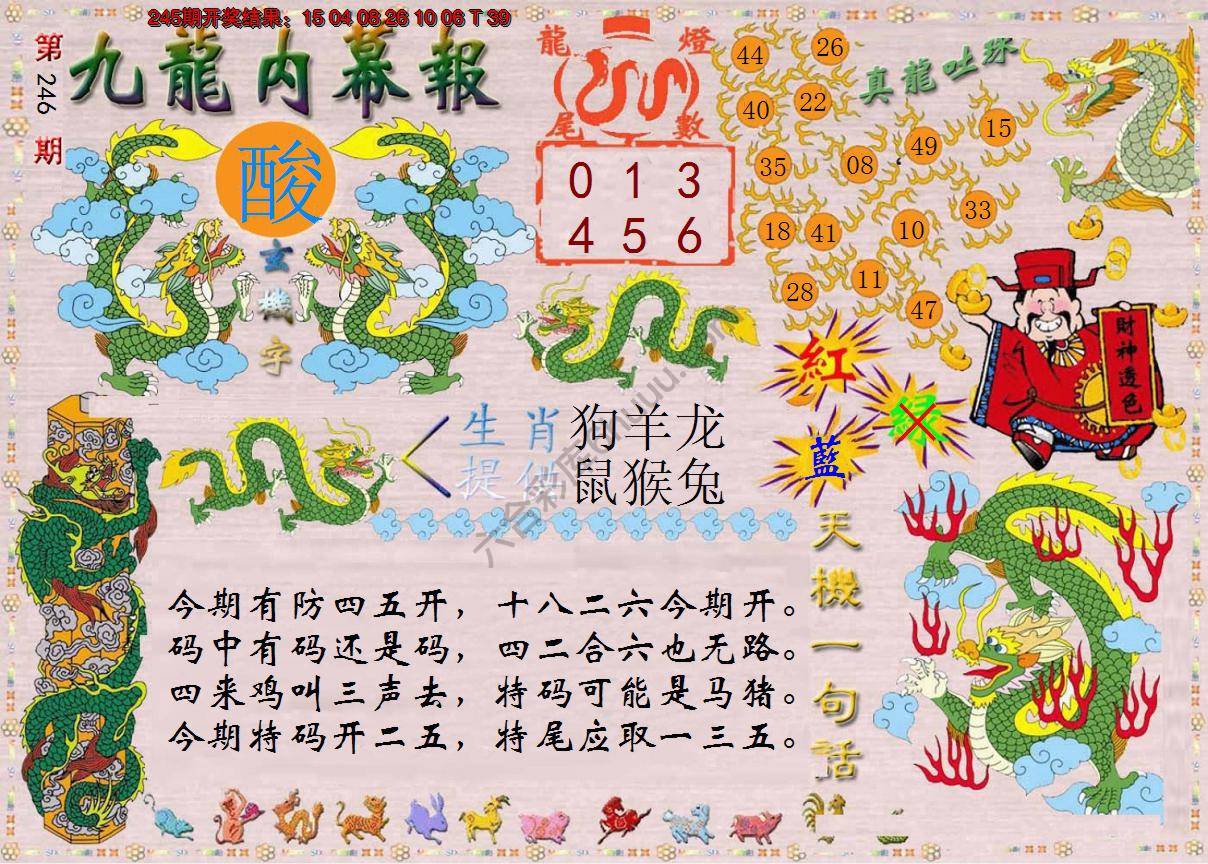 245期开奖结果：15 04 08 26 10 06 T 39
第246期
九龍内幕報
酸
玄機字
龍燈
尾數
0 1 3
4 5 6
真龍吐珠
44 26
40 22
35 08 49 15
18 41 10 33
28 11 47
財神透色
紅
绿
藍
生肖 狗羊龙
提供 鼠猴兔
天機一句话
今期有防四五开，十八二六今期开。
码中有码还是码，四二合六也无路。
四来鸡叫三声去，特码可能是马猪。
今期特码开二五，特尾应取一三五。